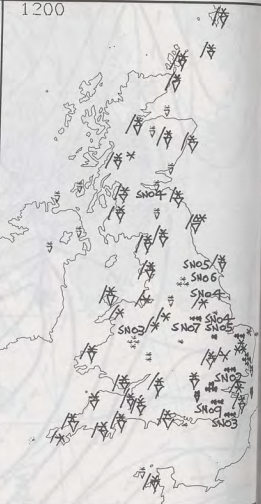 1200
SN04
SN05
SN06
SN04
SN03
SN07
SN04
SN05
SN02
SN09
SN03